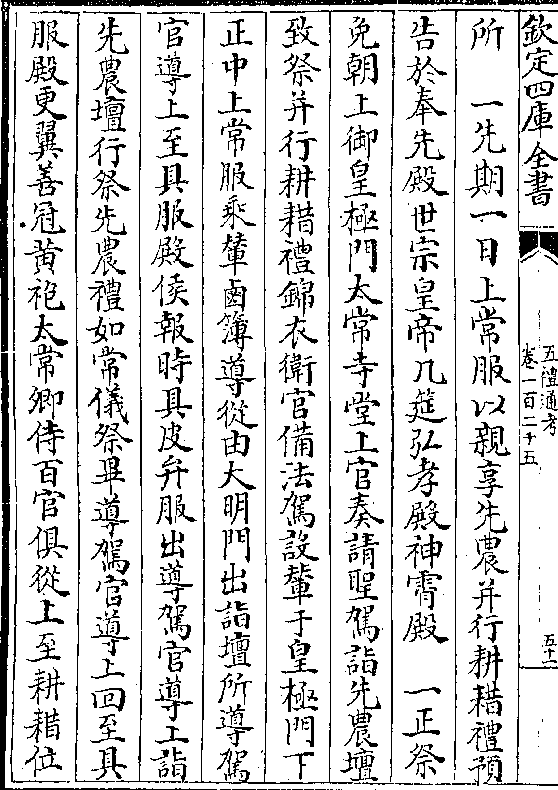 欽定四庫全書
五禮通考
卷一百二十五
五十一
所　一先期一日上常服以親享先農并行耕耤禮預
告於奉先殿世宗皇帝几筵弘孝殿神霄殿　一正祭
免朝上御皇極門太常寺堂上官奏請聖駕詣先農壇
致祭并行耕耤禮錦衣衛官備法駕設輦于皇極門下
正中上常服乘輦鹵簿導從由大明門出詣壇所導駕
官導上至具服殿俟報時具皮弁服出導駕官導上詣
先農壇行祭先農禮如常儀祭畢導駕官導上回至具
服殿更翼善冠黄袍太常卿侍百官俱從上至耕耤位